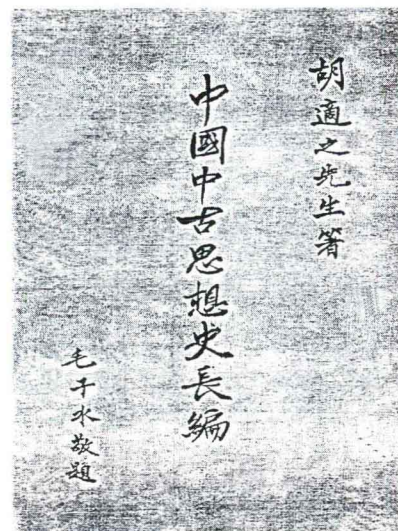 胡適之先生箸
中國中古思想史長編
毛子水敬題